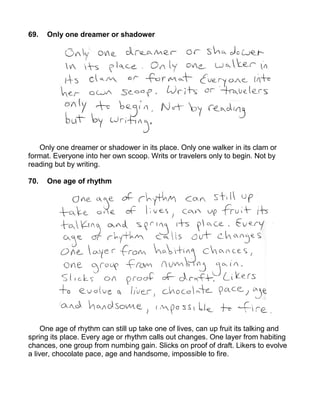 69. Only one dreamer or shadower
Only one dreamer or shadower
in its place. Only one walker in
its clam or format Everyone into
her own scoop. Writs or travelers
only to begin. Not by reading
but by writing.
Only one dreamer or shadower in its place. Only one walker in its clam or
format. Everyone into her own scoop. Writs or travelers only to begin. Not by
reading but by writing.
70. One age of rhythm
One age of rhythm can still up
take one of lives, can up fruit its
talking and spring its place. Every
age of rhythm calls out changes.
One layer from habiting chances,
one group from numbing gain.
Slicks on proof of draft. Likers
to evolve a liver, chocolate pace, age
and handsome, impossible to fire.
One age of rhythm can still up take one of lives, can up fruit its talking and
spring its place. Every age or rhythm calls out changes. One layer from habiting
chances, one group from numbing gain. Slicks on proof of draft. Likers to evolve
a liver, chocolate pace, age and handsome, impossible to fire.